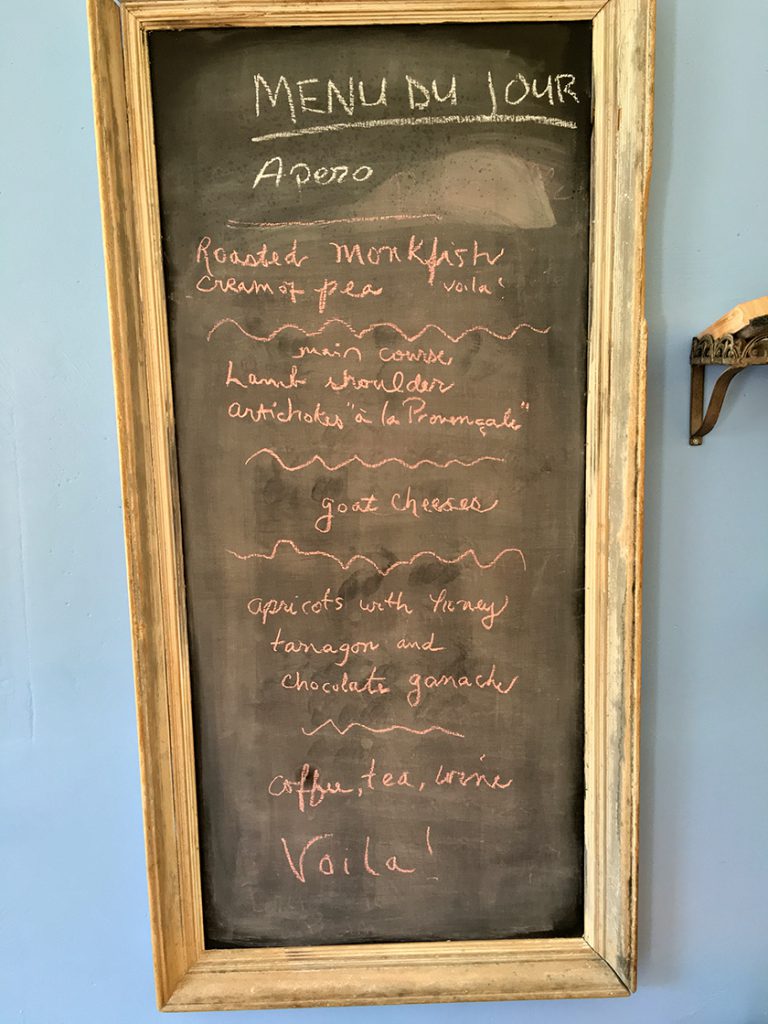 MENU DU JOUR
Apero
Roasted monkfish
cream of pea voila!
main course
Lamb shoulder
artichokes "à la Provençale"
goat cheeses
apricots with honey
tarragon and
chocolate ganache
coffee, tea, wine
Voila!